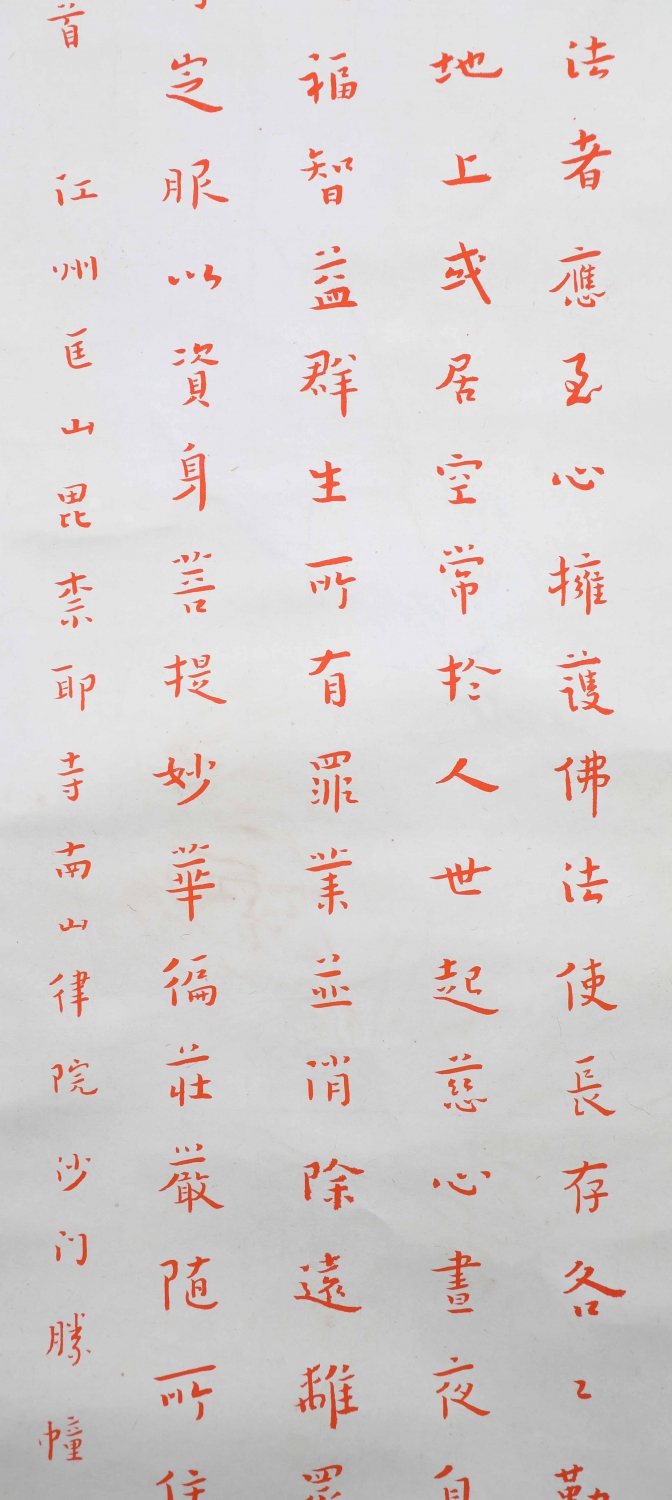 法者應至心擁護佛法使長存各〻勤
地上或居空常於人世起慈心晝夜自
福智益群生所有罪業並消除遠離眾
定服以資身菩提妙華徧莊嚴随所住
首 江州匡山毘柰耶寺南山律院沙门勝幢